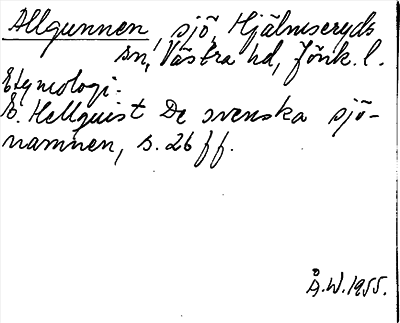 Allgunnen, sjö, Hjälmseryds
sn, Västra hd, Jönk. l.
Etymologi.
E. Hellquist De svenska sjö-
namnen, s. 26 ff.
Å.W. 1955.